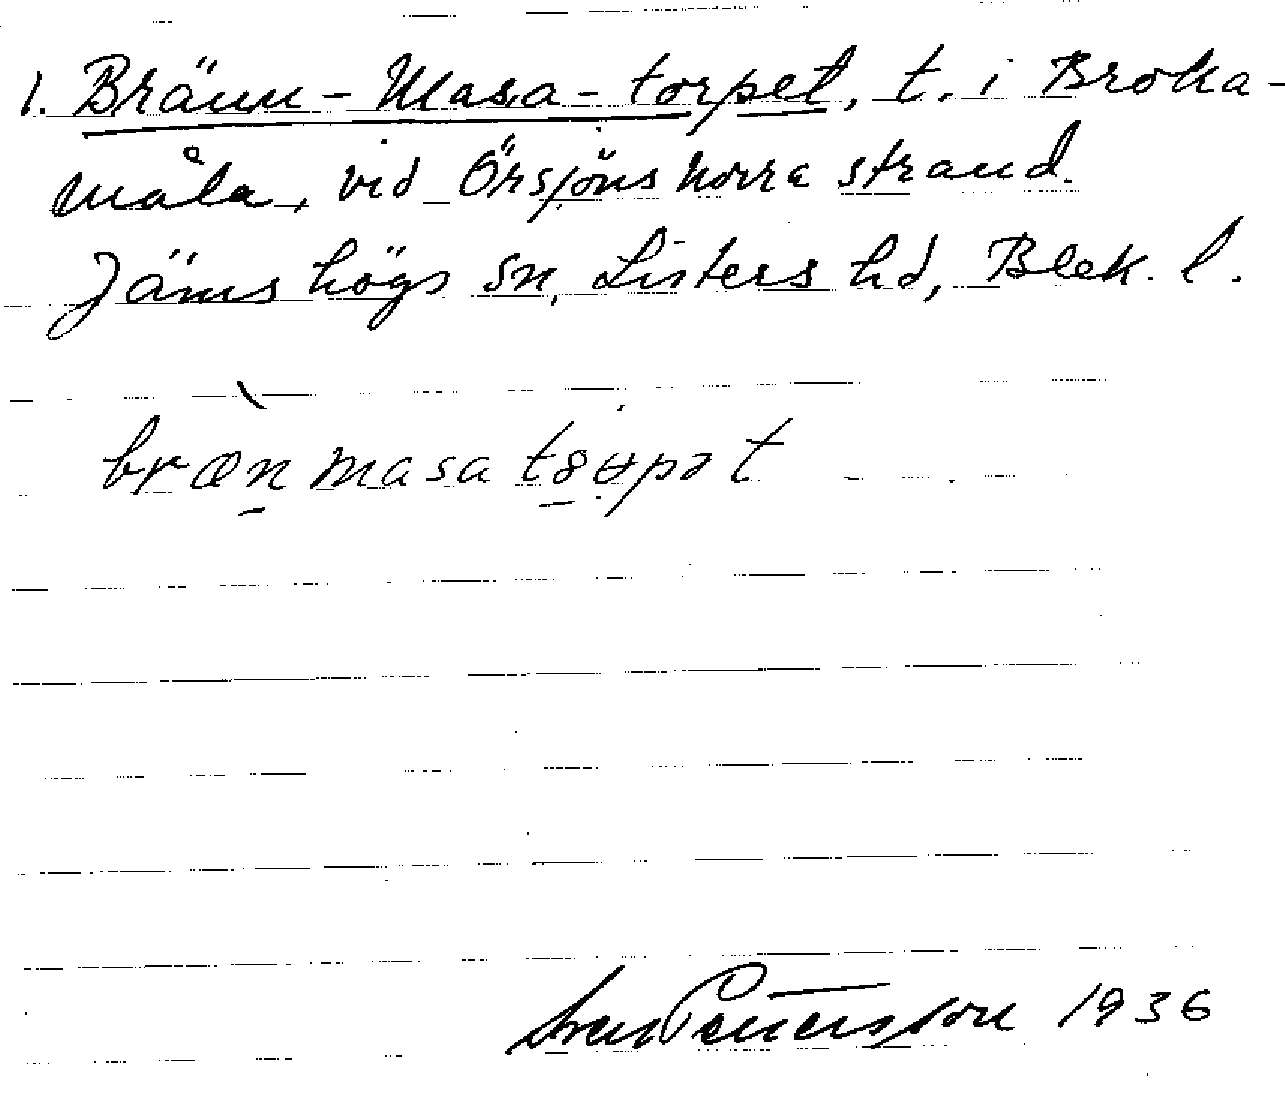 1. Bränn-Masa-torpet, t. i Broka-
måla, vid Örsjöns norra strand.
Jämshögs sn, Listers hd, Blek. l.
bræ̀n masa
Sven Pettersson 1936